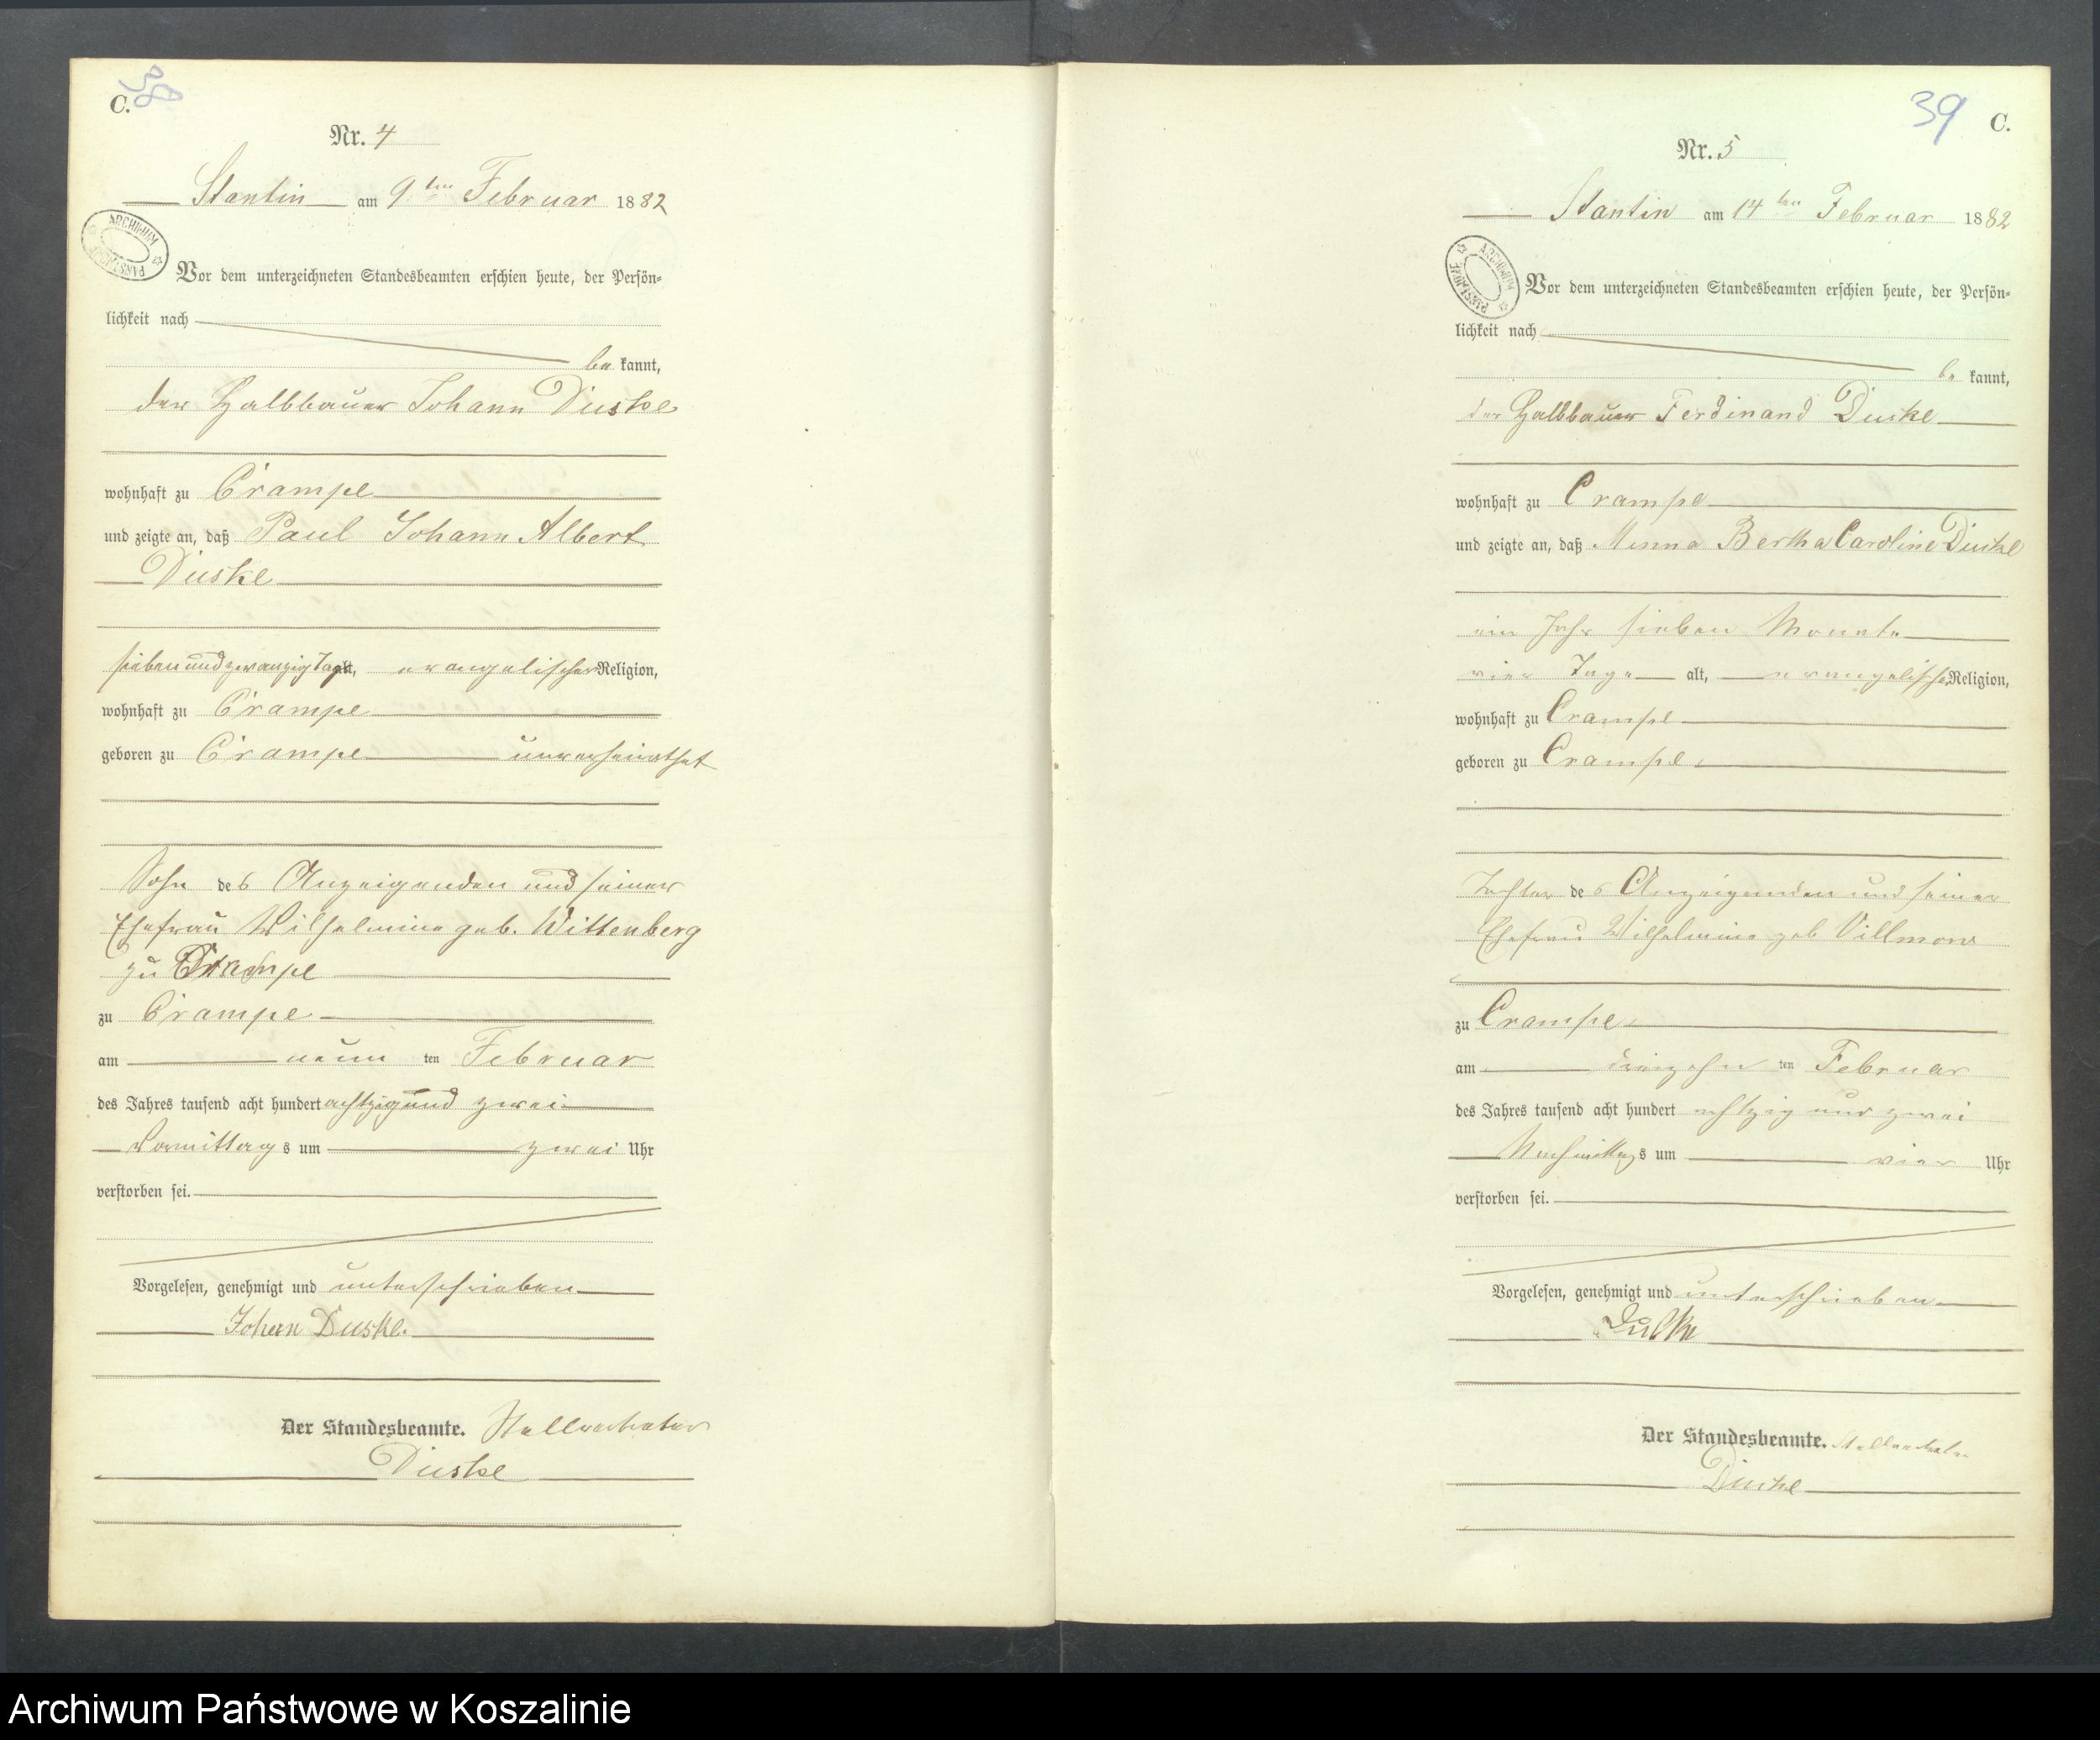 C.
38
Nr. 4
Stantin am 9ten Februar 1882
ARCHIWUM PAŃSTWOWE
Vor dem unterzeichneten Standesbeamten erschien heute, der Persön-
lichkeit nach
be kannt,
der Halbbauer Johann Duske
wohnhaft zu Crampe
und zeigte an, daß Paul Johann Albert
Duske
sieben und zwanzig Tage alt, evangelischer Religion,
wohnhaft zu Crampe
geboren zu Crampe unverheirathet
Sohn des Anzeigenden und seiner
Ehefrau Wilhelmine geb. Wittenberg
zu Crampe
zu Crampe
am neun ten Februar
des Jahres tausend acht hundert achtzig und zwei
Vormittags um zwei Uhr
verstorben sei.
Vorgelesen, genehmigt und unterschrieben
Johann Duske.
Der Standesbeamte. Stellvertreter
Duske
39
C.
Nr. 5
Stantin am 14ten Februar 1882
ARCHIWUM PAŃSTWOWE
Vor dem unterzeichneten Standesbeamten erschien heute, der Persön-
lichkeit nach
be kannt,
der Halbbauer Ferdinand Duske
wohnhaft zu Crampe
und zeigte an, daß Minna Bertha Caroline Duske
ein Jahr sieben Monate
vier Tage alt, evangelischer Religion,
wohnhaft zu Crampe
geboren zu Crampe
Tochter des Anzeigenden und seiner
Ehefrau Wilhelmine geb Villmow
zu Crampe
am dreizehn ten Februar
des Jahres tausend acht hundert achtzig und zwei
Nachmittags um vier Uhr
verstorben sei.
Vorgelesen, genehmigt und unterschrieben
Duske
Der Standesbeamte. Stellvertreter
Duske
Archiwum Państwowe w Koszalinie